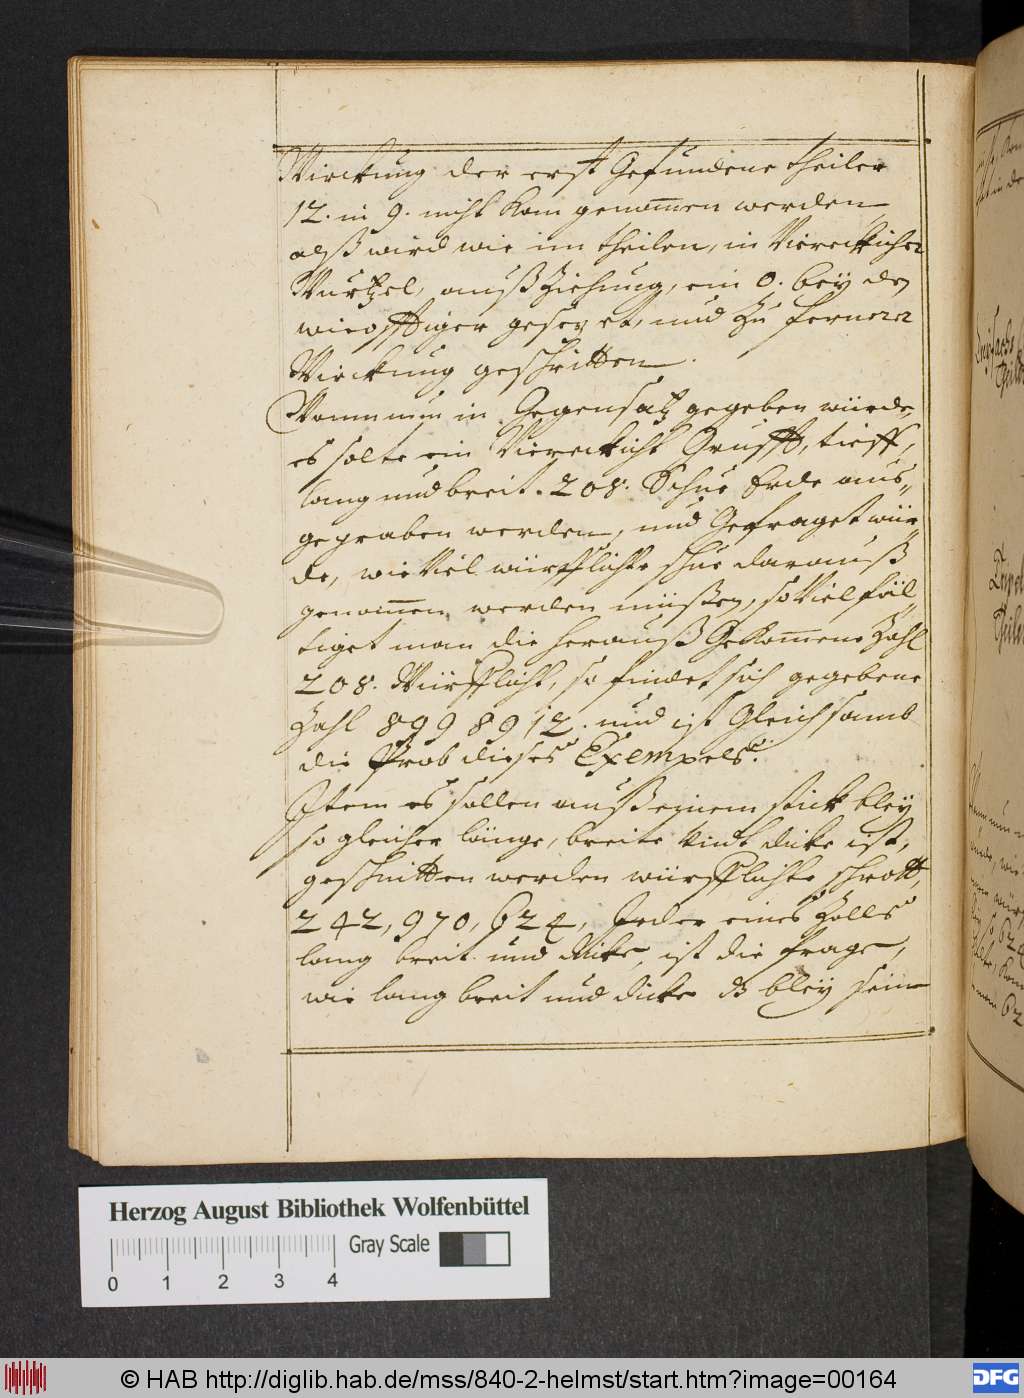 Wirckung der erst Gefundene theiler
12. in 9. nicht kan genom̄en werden
alß wird wie im theilen, in Viereckicher
Wurtzel, außziehung, ein 0. bey den
gesezet, und zu fernerer
Wirckung geschritten.
Wann nun in Gegensatz gegeben würde,
es solte ein Viereckicht Grufft, tieff,
lang und breit. 208. Schue Erde aus„
gegraben werden, und Gefraget wür„
de, wie Viel würfflichte schue darauß
genom̄en werden müßen, so Vielfäl„
tiget man die herauß Gekom̄ene Zahl
208. Würfflicht, so findet sich gegebene
Zahl 8998912. und ist Gleichsamb
die Prob dieses Exempels.
Item es sollen auß einem stück bley
so gleicher länge, breite undt dicke ist,
geschnitten werden würfflichte schrott,
242,970,624, Jeder eines Zolls
lang breit und dicke, ist die frage,
wie lang breit und dicke dz bley sein
Herzog August Bibliothek Wolfenbüttel
0 1 2 3 4
Gray Scale
© HAB http://diglib.hab.de/mss/840-2-helmst/start.htm?image=00164
DFG